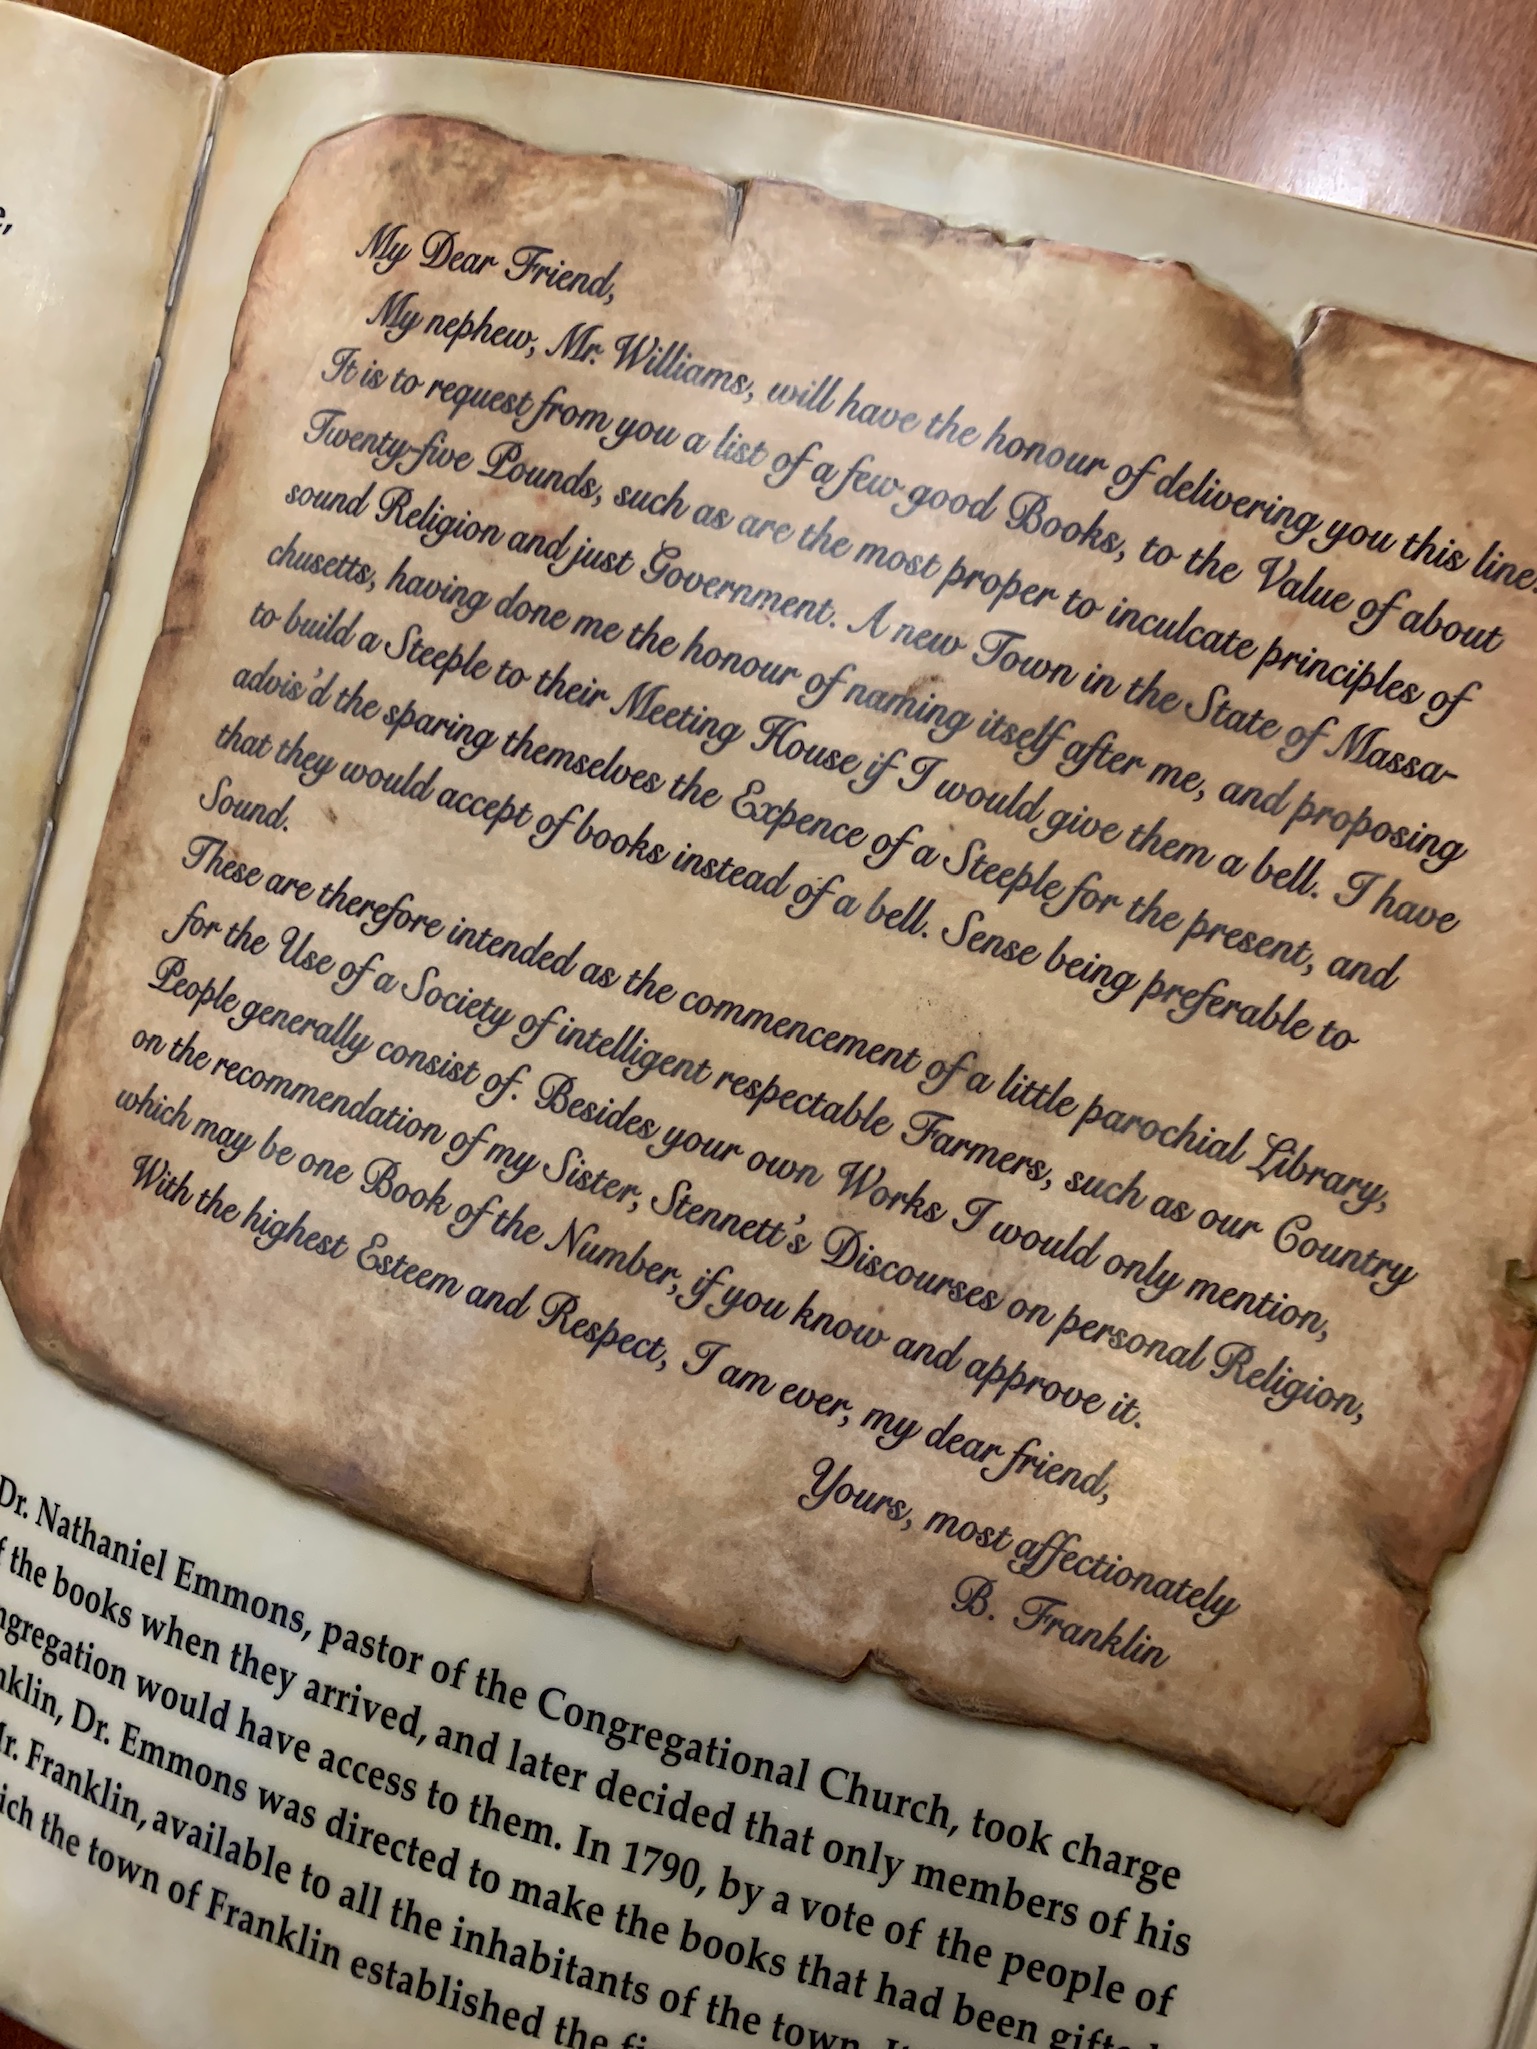 My Dear Friend,
My nephew, Mr. Williams, will have the honour of delivering you this line.
It is to request from you a list of a few good Books, to the Value of about
Twenty-five Pounds, such as are the most proper to inculcate principles of
sound Religion and just Government. A new Town in the State of Massa-
chusetts, having done me the honour of naming itself after me, and proposing
to build a Steeple to their Meeting House if I would give them a bell. I have
advis'd the sparing themselves the Expence of a Steeple for the present, and
that they would accept of books instead of a bell. Sense being preferable to
Sound.
These are therefore intended as the commencement of a little parochial Library,
for the Use of a Society of intelligent respectable Farmers, such as our Country
People generally consist of. Besides your own Works I would only mention,
on the recommendation of my Sister, Stennett's Discourses on personal Religion,
which may be one Book of the Number, if you know and approve it.
With the highest Esteem and Respect, I am ever, my dear friend,
Yours, most affectionately
B. Franklin
Dr. Nathaniel Emmons, pastor of the Congregational Church, took charge
the books when they arrived, and later decided that only members of his
would have access to them. In 1790, by a vote of the people of
Dr. Emmons was directed to make the books that had been
Franklin, available to all the inhabitants of the town.
the town of Franklin established the